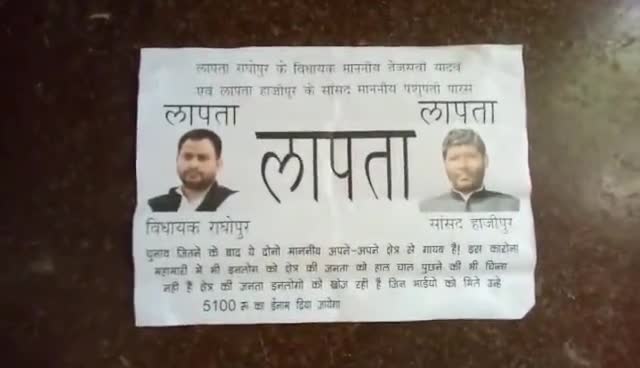 लापता राघोपुर के विधायक माननीय तेजस्वी यादव
एवं लापता हाजीपुर के सांसद माननीय पशुपती पारस
लापता
लापता
लापता
विधायक राघोपुर
सांसद हाजीपुर
चुनाव जितने के बाद ये दोनो माननीय अपने-अपने क्षेत्र से गायब है! इस कारोना
महामारी में भी इनलोग को क्षेत्र की जनता को हाल चाल पुछने की भी चिन्ता
नही है क्षेत्र की जनता इनलोगो को खोज रही है जिन भाईयो को मिले उन्हे
5100 रू का ईनाम दिया जायेगा